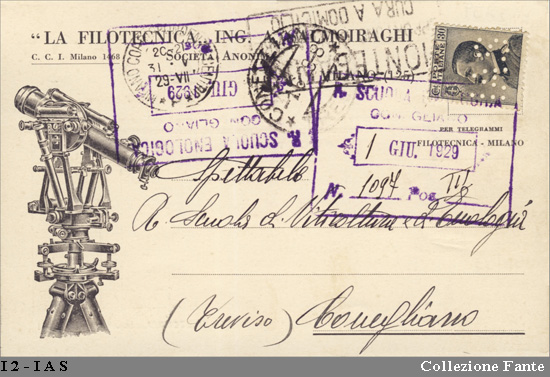 "LA FILOTECNICA" ING. A. SALMOIRAGHI
C. C. I. Milano 1468
Società Anon
MILANO (125)
CURA A DOMICILIO
PER TELEGRAMMI
FILOTECNICA - MILANO
R. SCUOLA ENOLOGICA
CONEGLIANO
GIU. 1929
R. SCUOLA
CONEGLIANO
1 GIU. 1929
N. 1097 Pos. III/
Spettabile
R. Scuola di Viticoltura e di Enologia
(Treviso) Conegliano
I2-IAS
Collezione Fante